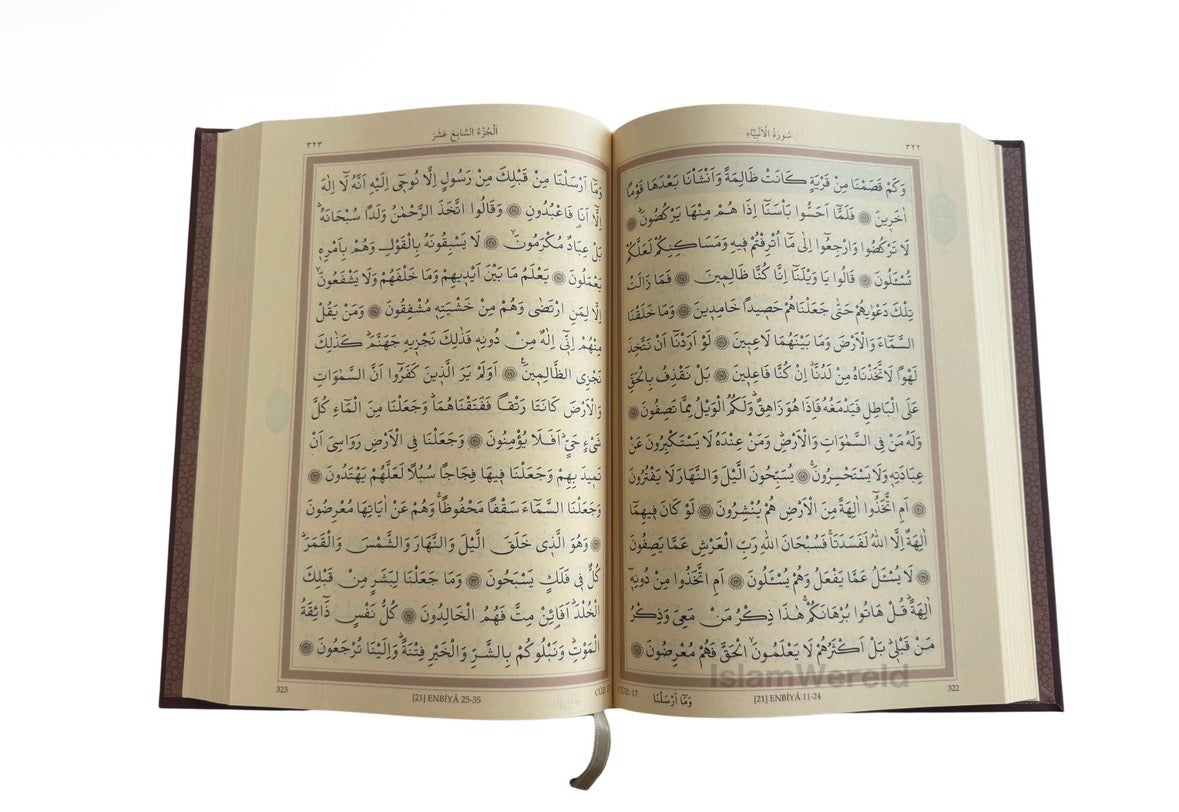 سُورَةُ الْاَنْبِيَاءِ
٣٢٢
وَكَمْ قَصَمْنَا مِنْ قَرْيَةٍ كَانَتْ ظَالِمَةً وَاَنْشَأْنَا بَعْدَهَا قَوْمًا
اٰخَر۪ينَ ﴿١١﴾ فَلَمَّٓا اَحَسُّوا بَأْسَنَٓا اِذَا هُمْ مِنْهَا يَرْكُضُونَۜ ﴿١٢﴾
لَا تَرْكُضُوا وَارْجِعُٓوا اِلٰى مَٓا اُتْرِفْتُمْ ف۪يهِ وَمَسَاكِنِكُمْ لَعَلَّكُمْ
تُسْـَٔلُونَ ﴿١٣﴾ قَالُوا يَا وَيْلَنَٓا اِنَّا كُنَّا ظَالِم۪ينَ ﴿١٤﴾ فَمَا زَالَتْ
تِلْكَ دَعْوٰيهُمْ حَتّٰى جَعَلْنَاهُمْ حَص۪يدًا خَامِد۪ينَ ﴿١٥﴾ وَمَا خَلَقْنَا
السَّمَٓاءَ وَالْاَرْضَ وَمَا بَيْنَهُمَا لَاعِب۪ينَ ﴿١٦﴾ لَوْ اَرَدْنَٓا اَنْ نَتَّخِذَ
لَهْوًا لَاتَّخَذْنَاهُ مِنْ لَدُنَّاۗ اِنْ كُنَّا فَاعِل۪ينَ ﴿١٧﴾ بَلْ نَقْذِفُ بِالْحَقِّ
عَلَى الْبَاطِلِ فَيَدْمَغُهُ فَاِذَا هُوَ زَاهِقٌۜ وَلَكُمُ الْوَيْلُ مِمَّا تَصِفُونَ ﴿١٨﴾
وَلَهُ مَنْ فِي السَّمٰوَاتِ وَالْاَرْضِۜ وَمَنْ عِنْدَهُ لَا يَسْتَكْبِرُونَ عَنْ
عِبَادَتِه۪ وَلَا يَسْتَحْسِرُونَۚ ﴿١٩﴾ يُسَبِّحُونَ الَّيْلَ وَالنَّهَارَ لَا يَفْتُرُونَ
﴿٢٠﴾ اَمِ اتَّخَذُٓوا اٰلِهَةً مِنَ الْاَرْضِ هُمْ يُنْشِرُونَ ﴿٢١﴾ لَوْ كَانَ ف۪يهِمَٓا
اٰلِهَةٌ اِلَّا اللّٰهُ لَفَسَدَتَاۚ فَسُبْحَانَ اللّٰهِ رَبِّ الْعَرْشِ عَمَّا يَصِفُونَ
﴿٢٢﴾ لَا يُسْـَٔلُ عَمَّا يَفْعَلُ وَهُمْ يُسْـَٔلُونَ ﴿٢٣﴾ اَمِ اتَّخَذُوا مِنْ دُونِه۪ٓ
اٰلِهَةًۜ قُلْ هَاتُوا بُرْهَانَكُمْۚ هٰذَا ذِكْرُ مَنْ مَعِيَ وَذِكْرُ
مَنْ قَبْل۪يۜ بَلْ اَكْثَرُهُمْ لَا يَعْلَمُونَۙ الْحَقَّ فَهُمْ مُعْرِضُونَ ﴿٢٤﴾
CÜZ: 17
وَمَٓا اَرْسَلْنَا
[21] ENBİYÂ 11-24
322
IslamWereld
اَلْجُزْءُ السَّابِعَ عَشَرَ
٣٢٣
وَمَٓا اَرْسَلْنَا مِنْ قَبْلِكَ مِنْ رَسُولٍ اِلَّا نُوح۪ٓي اِلَيْهِ اَنَّهُ لَٓا اِلٰهَ
اِلَّٓا اَنَا۬ فَاعْبُدُونِ ﴿٢٥﴾ وَقَالُوا اتَّخَذَ الرَّحْمٰنُ وَلَدًا سُبْحَانَهُۜ
بَلْ عِبَادٌ مُكْرَمُونَۙ ﴿٢٦﴾ لَا يَسْبِقُونَهُ بِالْقَوْلِ وَهُمْ بِاَمْرِه۪
يَعْمَلُونَ ﴿٢٧﴾ يَعْلَمُ مَا بَيْنَ اَيْد۪يهِمْ وَمَا خَلْفَهُمْ وَلَا يَشْفَعُونَۙ
اِلَّا لِمَنِ ارْتَضٰى وَهُمْ مِنْ خَشْيَتِه۪ مُشْفِقُونَ ﴿٢٨﴾ وَمَنْ يَقُلْ
مِنْهُمْ اِنّ۪ٓي اِلٰهٌ مِنْ دُونِه۪ فَذٰلِكَ نَجْز۪يهِ جَهَنَّمَۜ كَذٰلِكَ
نَجْزِي الظَّالِم۪ينَ۟ ﴿٢٩﴾ اَوَلَمْ يَرَ الَّذ۪ينَ كَفَرُٓوا اَنَّ السَّمٰوَاتِ
وَالْاَرْضَ كَانَتَا رَتْقًا فَفَتَقْنَاهُمَاۜ وَجَعَلْنَا مِنَ الْمَٓاءِ كُلَّ
شَيْءٍ حَيٍّۜ اَفَلَا يُؤْمِنُونَ ﴿٣٠﴾ وَجَعَلْنَا فِي الْاَرْضِ رَوَاسِيَ اَنْ
تَم۪يدَ بِهِمْ وَجَعَلْنَا ف۪يهَا فِجَاجًا سُبُلًا لَعَلَّهُمْ يَهْتَدُونَ ﴿٣١﴾
وَجَعَلْنَا السَّمَٓاءَ سَقْفًا مَحْفُوظًاۚ وَهُمْ عَنْ اٰيَاتِهَا مُعْرِضُونَ
﴿٣٢﴾ وَهُوَ الَّذ۪ي خَلَقَ الَّيْلَ وَالنَّهَارَ وَالشَّمْسَ وَالْقَمَرَۜ
كُلٌّ ف۪ي فَلَكٍ يَسْبَحُونَ ﴿٣٣﴾ وَمَا جَعَلْنَا لِبَشَرٍ مِنْ قَبْلِكَ
الْخُلْدَۜ اَفَا۬ئِنْ مِتَّ فَهُمُ الْخَالِدُونَ ﴿٣٤﴾ كُلُّ نَفْسٍ ذَٓائِقَةُ
الْمَوْتِۜ وَنَبْلُوكُمْ بِالشَّرِّ وَالْخَيْرِ فِتْنَةًۜ وَاِلَيْنَا تُرْجَعُونَ ﴿٣٥﴾
323
[21] ENBİYÂ 25-35
CÜZ: 17